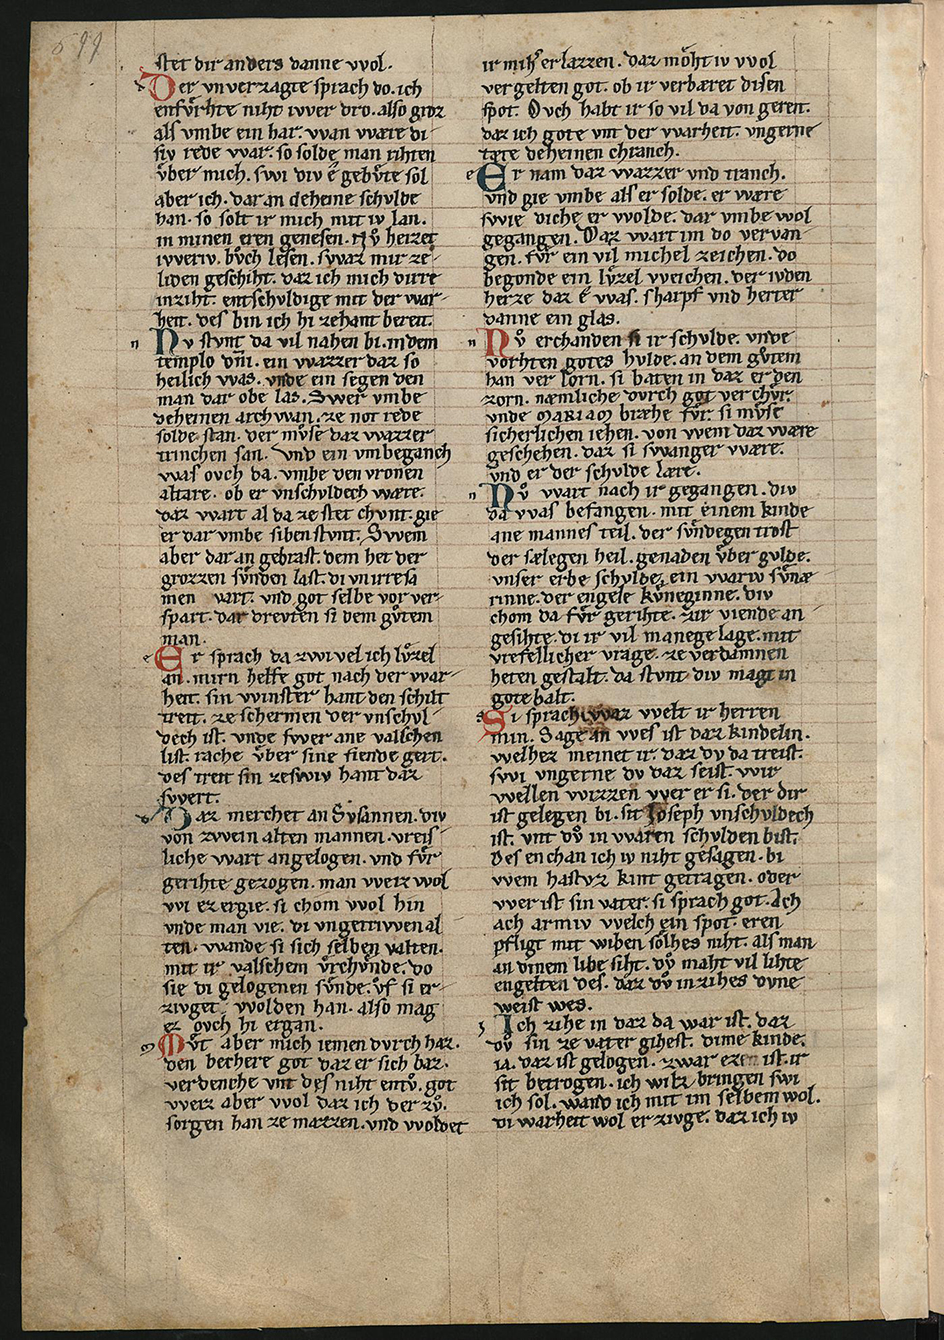 stet dir anders danne wol.
Der vnverzagte sprach do. ich
enfvͤrhte niht iwer dro. also groz
als vmbe ein har. wan wære di
siv rede war. so solde man rihten
vͤber mich. swi div é gebvͤte sol
aber ich. dar an deheine schvlde
han. so solt ir mich mit iv lan.
in minen eren genesen. nv heizet
iweriv. bvͦch lesen. swaz mir ze
liden geschiht. daz ich mich dirre
inziht. entschvldige mit der war
heit. des bin ich hi zehant bereit.
Nv stvnt da vil nahen bi. in dem
templo dn̄i. ein wazzer daz so
heilich was. vnde ein segen den
man dar obe las. Swer vmbe
deheinen arch wan. ze not rede
solde stan. der mvͦse daz wazzer
trinchen san. Vnd ein vmbeganch
was ovch da. vmbe den vronen
altare. ob er vnschvldech wære.
daz wart al da ze stet chvnt. gie
er dar vmbe siben stvnt. Swem
aber dar an gebrast. dem het der
grozzen svͤnden last. di vnirresa
men vart. vnd got selbe vor ver
spart. daz drevten si dem gvͦtem
man.
Er sprach da zwivel ich lvͤzel
an. mirn helfe got nach der war
heit. sin winster hant den schilt
treit. ze schermen der vnschvl
dech ist. vnde swer ane valschen
list. rache vͤber sine fiende gert.
des treit sin zeswiv hant daz
swert.
Daz merchet an Svsannen. div
von zwein alten mannen. vreis
liche wart angelogen. vnd fvͤr
gerihte gezogen. man weiz wol
wi ez ergie. si chom wol hin
vnde man vie. di vngetriwen al
ten. wande si sich selben valten.
mit ir valschem vͤrchvͤnde. do
sie di gelogenen svͤnde. vͤf si er
zivget wolden han. also mag
ez ovch hi ergan.
Mvͤt aber mich iemen dvrch haz.
den bechere got daz er sich baz.
verdenche vnt des niht entvͦ. got
weiz aber wol daz ich der zvͦ.
sorgen han ze mazzen. vnd woldet
ir mihs erlazzen. daz moͤht iv wol
vergelten got. ob ir verbæret disen
spot. Ovch habt ir so vil da von geseit.
daz ich gote vnt der warheit. vngerne
tæte deheinen chranch.
Er nam daz wazzer vnd tranch.
vnd gie vmbe als er solde. er wære
swie diche er wolde. dar vmbe wol
gegangen. Daz wart im do vervan
gen. fvͤr ein vil michel zeichen. do
begonde ein lvͤzel weichen. der ivden
herze daz é was. sharpf vnd herter
danne ein glas.
Nvͦ erchanden si ir schvlde. vnde
vorhten gotes hvlde. an dem gvͦtem
han verlorn. si baten in daz er den
zorn. næmliche dvrch got verchvͤr.
vnde MARIAM bræhe fvͤr. si mvͤse
sicherlichen iehen. von wem daz wære
geschehen. daz si swanger wære.
vnd er der schvlde lære.
Nvͦ wart nach ir gegangen. div
da was befangen. mit einem kinde
ane mannes teil. der svͤndegen trost
der sælegen heil. genaden vͤber gvlde.
vnser erbe schvlde. ein wariv svͤnæ
rinne. der engele kvͤneginne. div
chom da fvͤr gerihte. zir viende an
gesihte. di ir vil manege lage. mit
vrefellicher vrage. ze verdamnen
heten gestalt. da stvnt div magt in
gote balt.
Si sprach waz welt ir herren
min. Sage an wes ist daz kindelin.
welhez meinet ir. daz dv da treist.
swi vngerne dv daz seist. wir
wellen wizzen wer er si. der dir
ist gelegen bi. sit Joseph vnschvldech
ist. vnt dvͦ in waren schvlden bist.
Des enchan ich iv niht gesagen. bi
wem hastvz kint getragen. oder
wer ist sin vater. si sprach got. Ach
ach armiv welch ein spot. eren
pfligt mit wiben solhes niht. als man
an dinem libe siht. dvͦ maht vil lihte
engelten des. daz dvͦ in zihes dvne
weist wes.
Ich zihe in daz da war ist. daz
dvͦ sin ze vater gihest. dime kinde.
ia. daz ist gelogen. zwar ezen ist. ir
sit betrogen. ich wilz bringen swi
ich sol. wand ich mit im selbem wol.
di warheit wol erzivge. daz ich iv